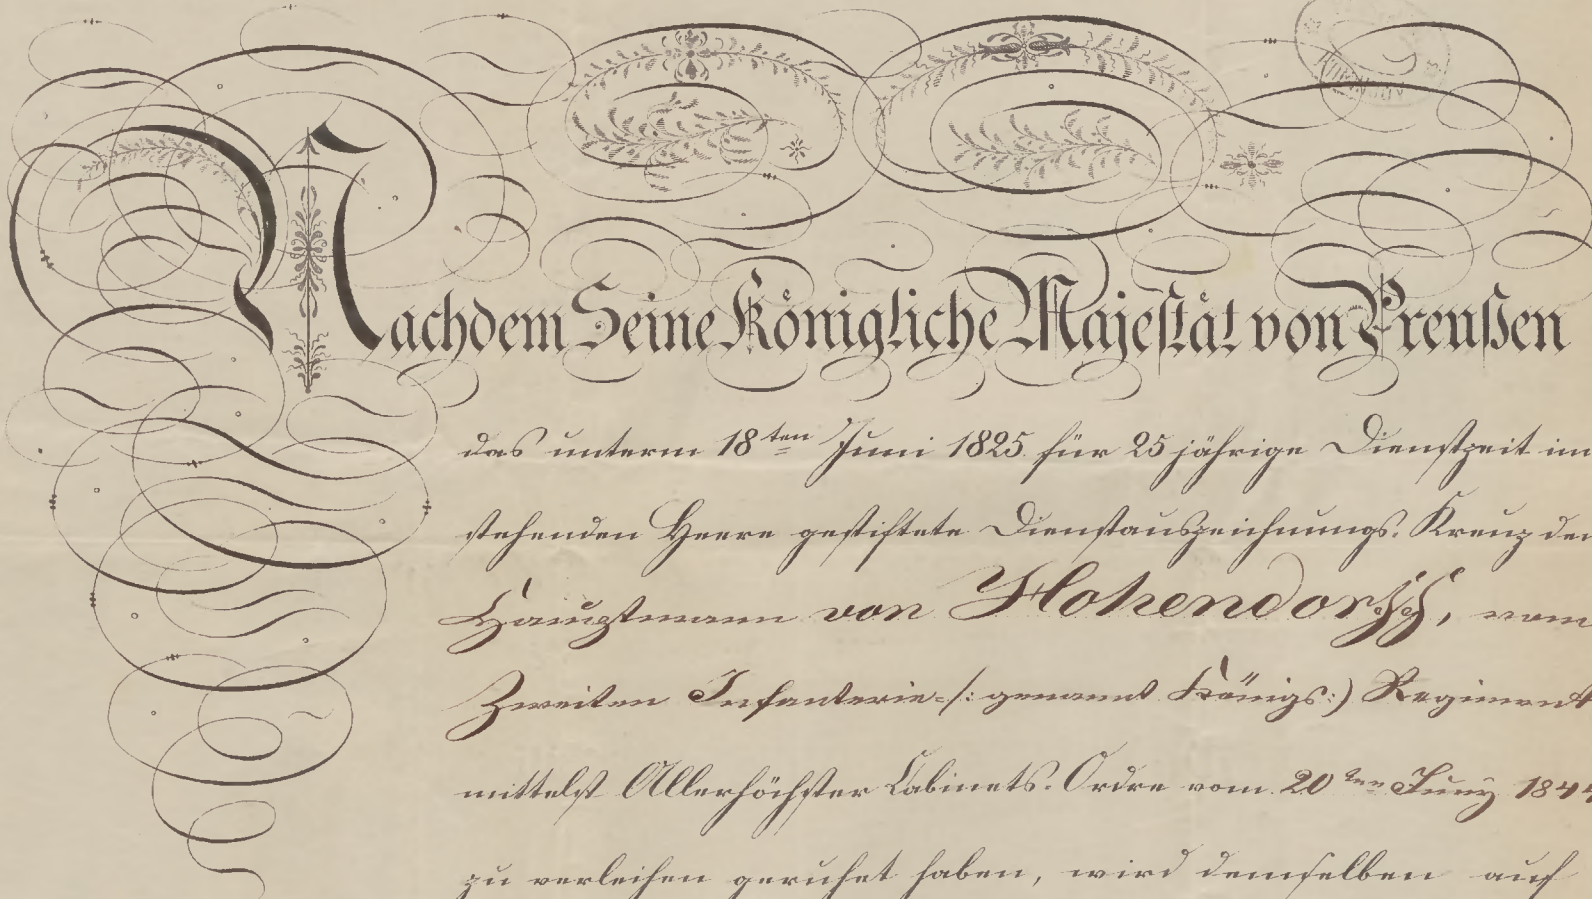 Nachdem Seine Königliche Majestät von Preußen
das unterm 18ten Juni 1825 für 25 jährige Dienstzeit im
stehenden Heere gestiftete Dienstauszeichnungs-Kreuz dem
Hauptmann von Hohendorff, vom
Zweiten Infanterie-/: genannt Königs:) Regiment
mittelst Allerhöchster Cabinets-Ordre vom 20ten Juny 1844
zu verleihen geruhet haben, wird demselben auf